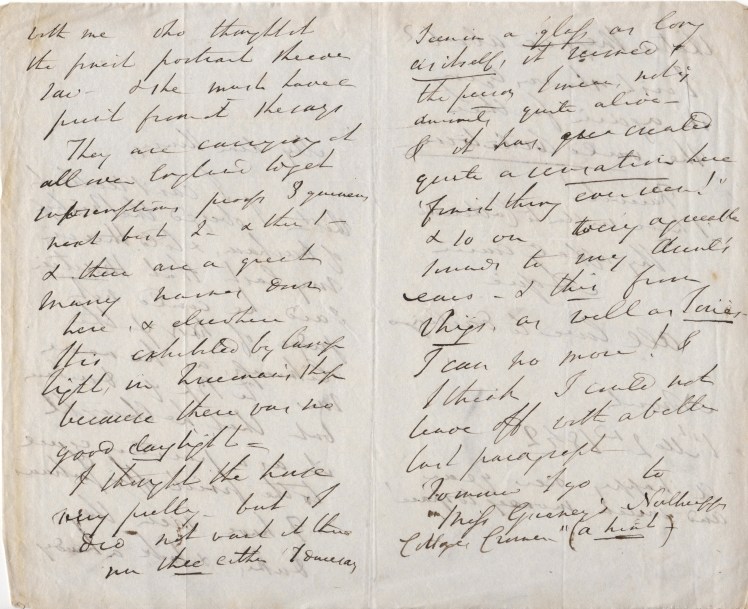 with me who thought it
the finest portrait she ever
saw - & she must have a
print from it she says
They are carrying it
all over England to get
subscriptions proofs 3 guineas
next best 2 - & then 1 -
& there are a great
many names down
here & elsewhere
It is exhibited by
light, in Freeman's Shop
because there was no
good daylight -
I thought the
very - but I
did not want it then
nor thee either
I seen in a glass as long
as itself, it seemed
the person I mean, not
quite alive -
& it has created
quite a sensation here
"finest thing ever seen!"
& so on very agreeable
sounds to my
ears - & this from
Whigs, as well as Tories -
I can no more! &
I think I could not
leave off with a better
last paragraph
I go to
"Miss Gurney's Northrepps
Cottage Cromer" (a hint)